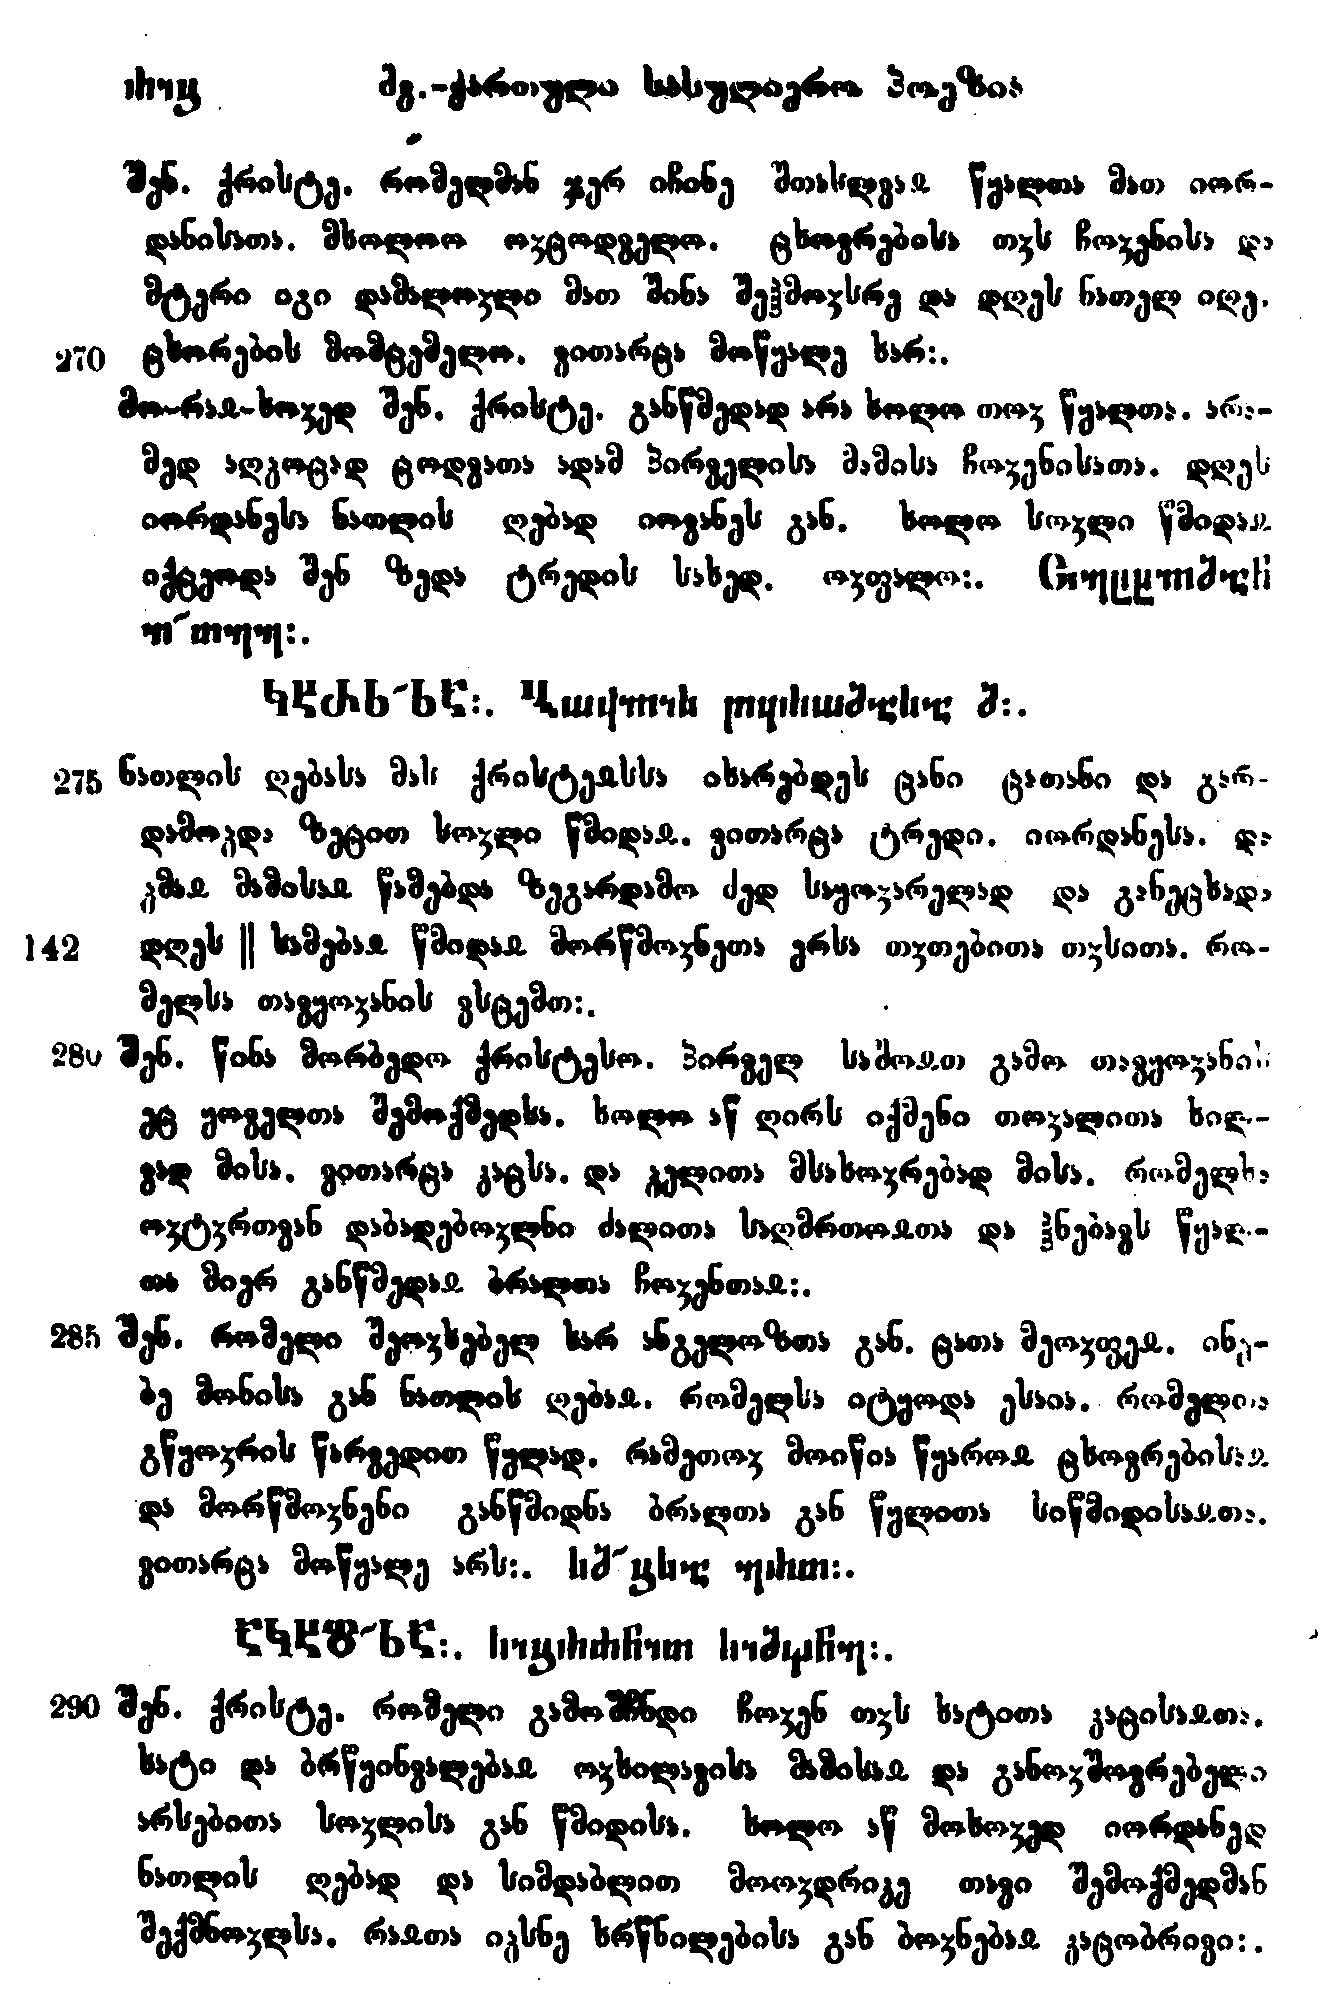 ⴑⴈⴚ ძვ.-ქართული სასულიერო პოეზია
შენ. ქრისტე. რომელმან ჯერ იჩინე შთასლვაჲ წყალთა მათ იორ-
დანისათა. მხოლოო ოჳცოდველო. ცხოვრებისა თჳს ჩოჳენისა და
მტერი იგი დამალოჳლი მათ შინა შეჰმოჳსრე და დღეს ნათელ იღე.
270 ცხორების მომცემელო. ვითარცა მოწყალე ხარ:.
მო-რაჲ-ხოჳედ შენ. ქრისტე. განწმედად არა ხოლო თოჳ წყალთა. არა-
მედ აღჴოცად ცოდვათა ადამ პირველისა მამისა ჩოჳენისათა. დღეს
იორდანესა ნათლის ღებად იოვანეს გან. ხოლო სოჳლი წმიდაჲ
იქცეოდა შენ ზედა ტრედის სახედ. ოჳფალო:.
275 ნათლის ღებასა მას ქრისტეჲსსა იხარებდეს ცანი ცათანი და გარ-
დამოჴდა ზეცით სოჳლი წმიდაჲ. ვითარცა ტრედი. იორდანესა. და
ჴმაჲ მამისაჲ წამებდა ზეგარდამო ძედ საყოჳარელად და განეცხადა
142 დღეს || სამებაჲ წმიდაჲ მორწმოჳნეთა ერსა თჳთებითა თჳსითა. რო-
მელსა თავყოჳანის ვსცემთ:.
280 შენ. წინა მორბედო ქრისტესო. პირველ საშოჲთ გამო თავყოჳანის
ეც ყოველთა შემოქმედსა. ხოლო აწ ღირს იქმენი თოჳალითა ხილ-
ვად მისა. ვითარცა კაცსა. და ჴელითა მსახოჳრებად მისა. რომელსა
ოჳტჳრთვან დაბადებოჳლნი ძალითა საღმრთოჲთა და ჰნებავს წყალ-
თა მიერ განწმედაჲ ბრალთა ჩოჳენთაჲ:.
285 შენ. რომელი შეოჳხებელ ხარ ანგელოზთა გან. ცათა მეოჳფეჲ. ინე-
ბე მონისა გან ნათლის ღებაჲ. რომელსა იტყოდა ესაია. რომელი
გწყოჳრის წარვედით წყლად. რამეთოჳ მოიწია წყაროჲ ცხოვრებისაჲ
და მორწმოჳნენი განწმიდნა ბრალთა გან წყლითა სიწმიდისაჲთა.
ვითარცა მოწყალე არს:.
290 შენ. ქრისტე. რომელი გამოშჩნდი ჩოჳენ თჳს ხატითა კაცისაჲთა.
ხატი და ბრწყინვალებაჲ ოჳხილავისა მამისაჲ და განოჳშოვრებელი
არსებითა სოჳლისა გან წმიდისა. ხოლო აწ მოხოჳედ იორდანედ
ნათლის ღებად და სიმდაბლით მოოჳდრიკე თავი შემოქმედმან
შექმნოჳლსა. რაჲთა იჴსნე ხრწნილებისა გან ბოჳნებაჲ კაცობრივი:.